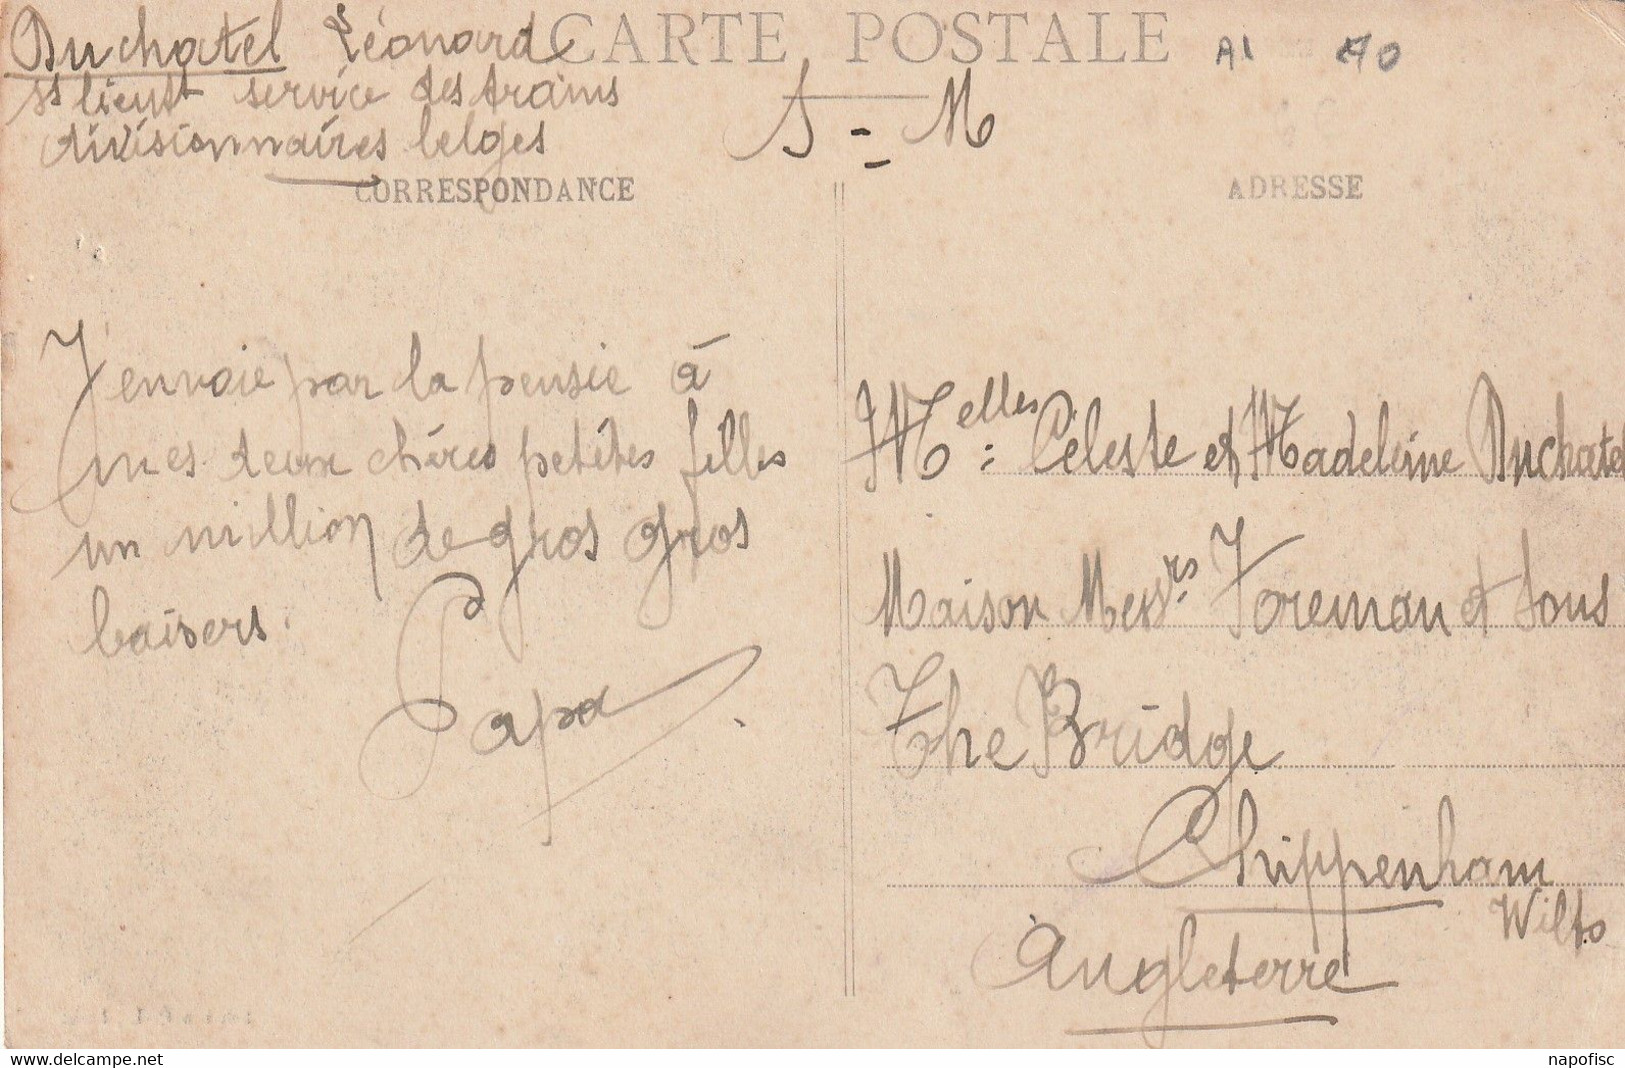 Duchatel Léonard
CARTE POSTALE
A1 70
ss lieutt service des trains
divisionnaires belges
S = M
CORRESPONDANCE
J'envoie par la pensée à
mes deux chères petites filles
un million de gros gros
baisers.
Papa
ADRESSE
Melles = Céleste et Madeleine Duchatel
Maison Messrs. Foreman et Sons
The Bridge
Chippenham
Wilts
Angleterre
www.delcampe.net
napofisc